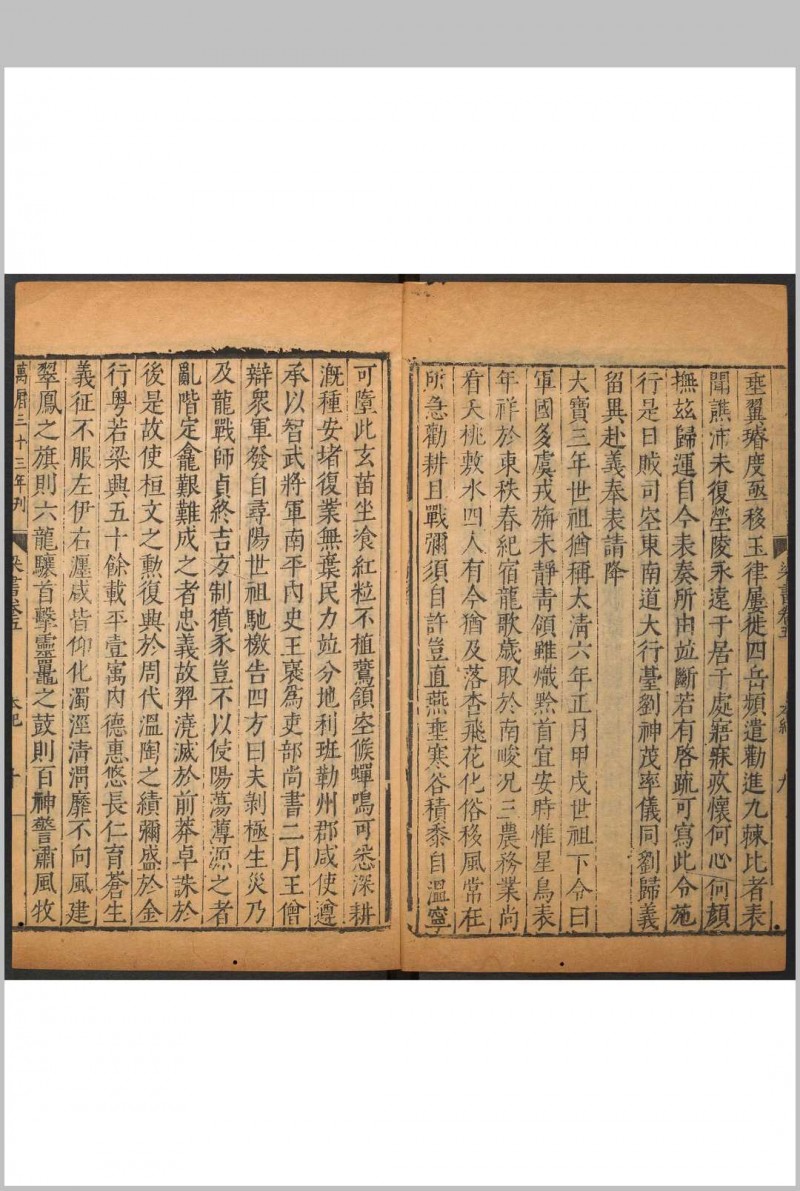 垂翼璿度亟移玉律屢徙四岳頻遣勸進九棘比者表
聞譙沛未復塋陵永遠于居于處寤寐疚懷何心何顏
撫茲歸運自今表奏所由竝斷若有啓疏可寫此令施
行是日賊司空東南道大行臺劉神茂率儀同劉歸義
留異赴義奉表請降
大寶三年世祖猶稱太清六年正月甲戌世祖下令曰
軍國多虞戎旃未靜靑領雖熾黔首宜安時惟星鳥表
年祥於東秩春紀宿龍歌歲取於南畯况三農務業尚
看夭桃敷水四人有令猶及落杏飛花化俗移風常在
所急勸耕且戰彌須自許豈直燕垂寒谷積黍自温寧
梁書卷五
本紀
九
可墮此玄苗坐飡紅粒不植鷰頷空候蟬鳴可悉深耕
漑種安堵復業無棄民力竝分地利班勒州郡咸使遵
承以智武將軍南平內史王褒爲吏部尚書二月王僧
辯衆軍發自尋陽世祖馳檄告四方曰夫剝極生災乃
及龍戰師貞終吉方制獖豕豈不以侵陽蕩薄源之者
亂階定龕艱難成之者忠義故羿澆滅於前莽卓誅於
後是故使桓文之勲復興於周代溫陶之績彌盛於金
行粤若梁興五十餘載平壹寓內德惠悠長仁育蒼生
義征不服左伊右瀍咸皆仰化濁涇淸渭靡不向風建
翠鳳之旗則六龍驤首擊靈鼉之鼓則百神警肅風牧
萬曆三十三年刋
梁書卷五
本紀
十